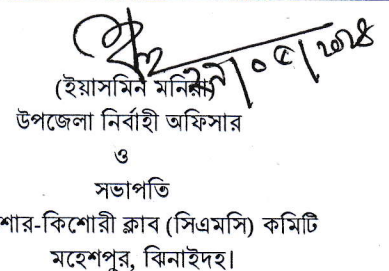 (ইয়াসমিন মনিরা)
উপজেলা নির্বাহী অফিসার
ও
সভাপতি
শোর-কিশোরী ক্লাব (সিএমসি) কমিটি
মহেশপুর, ঝিনাইদহ।